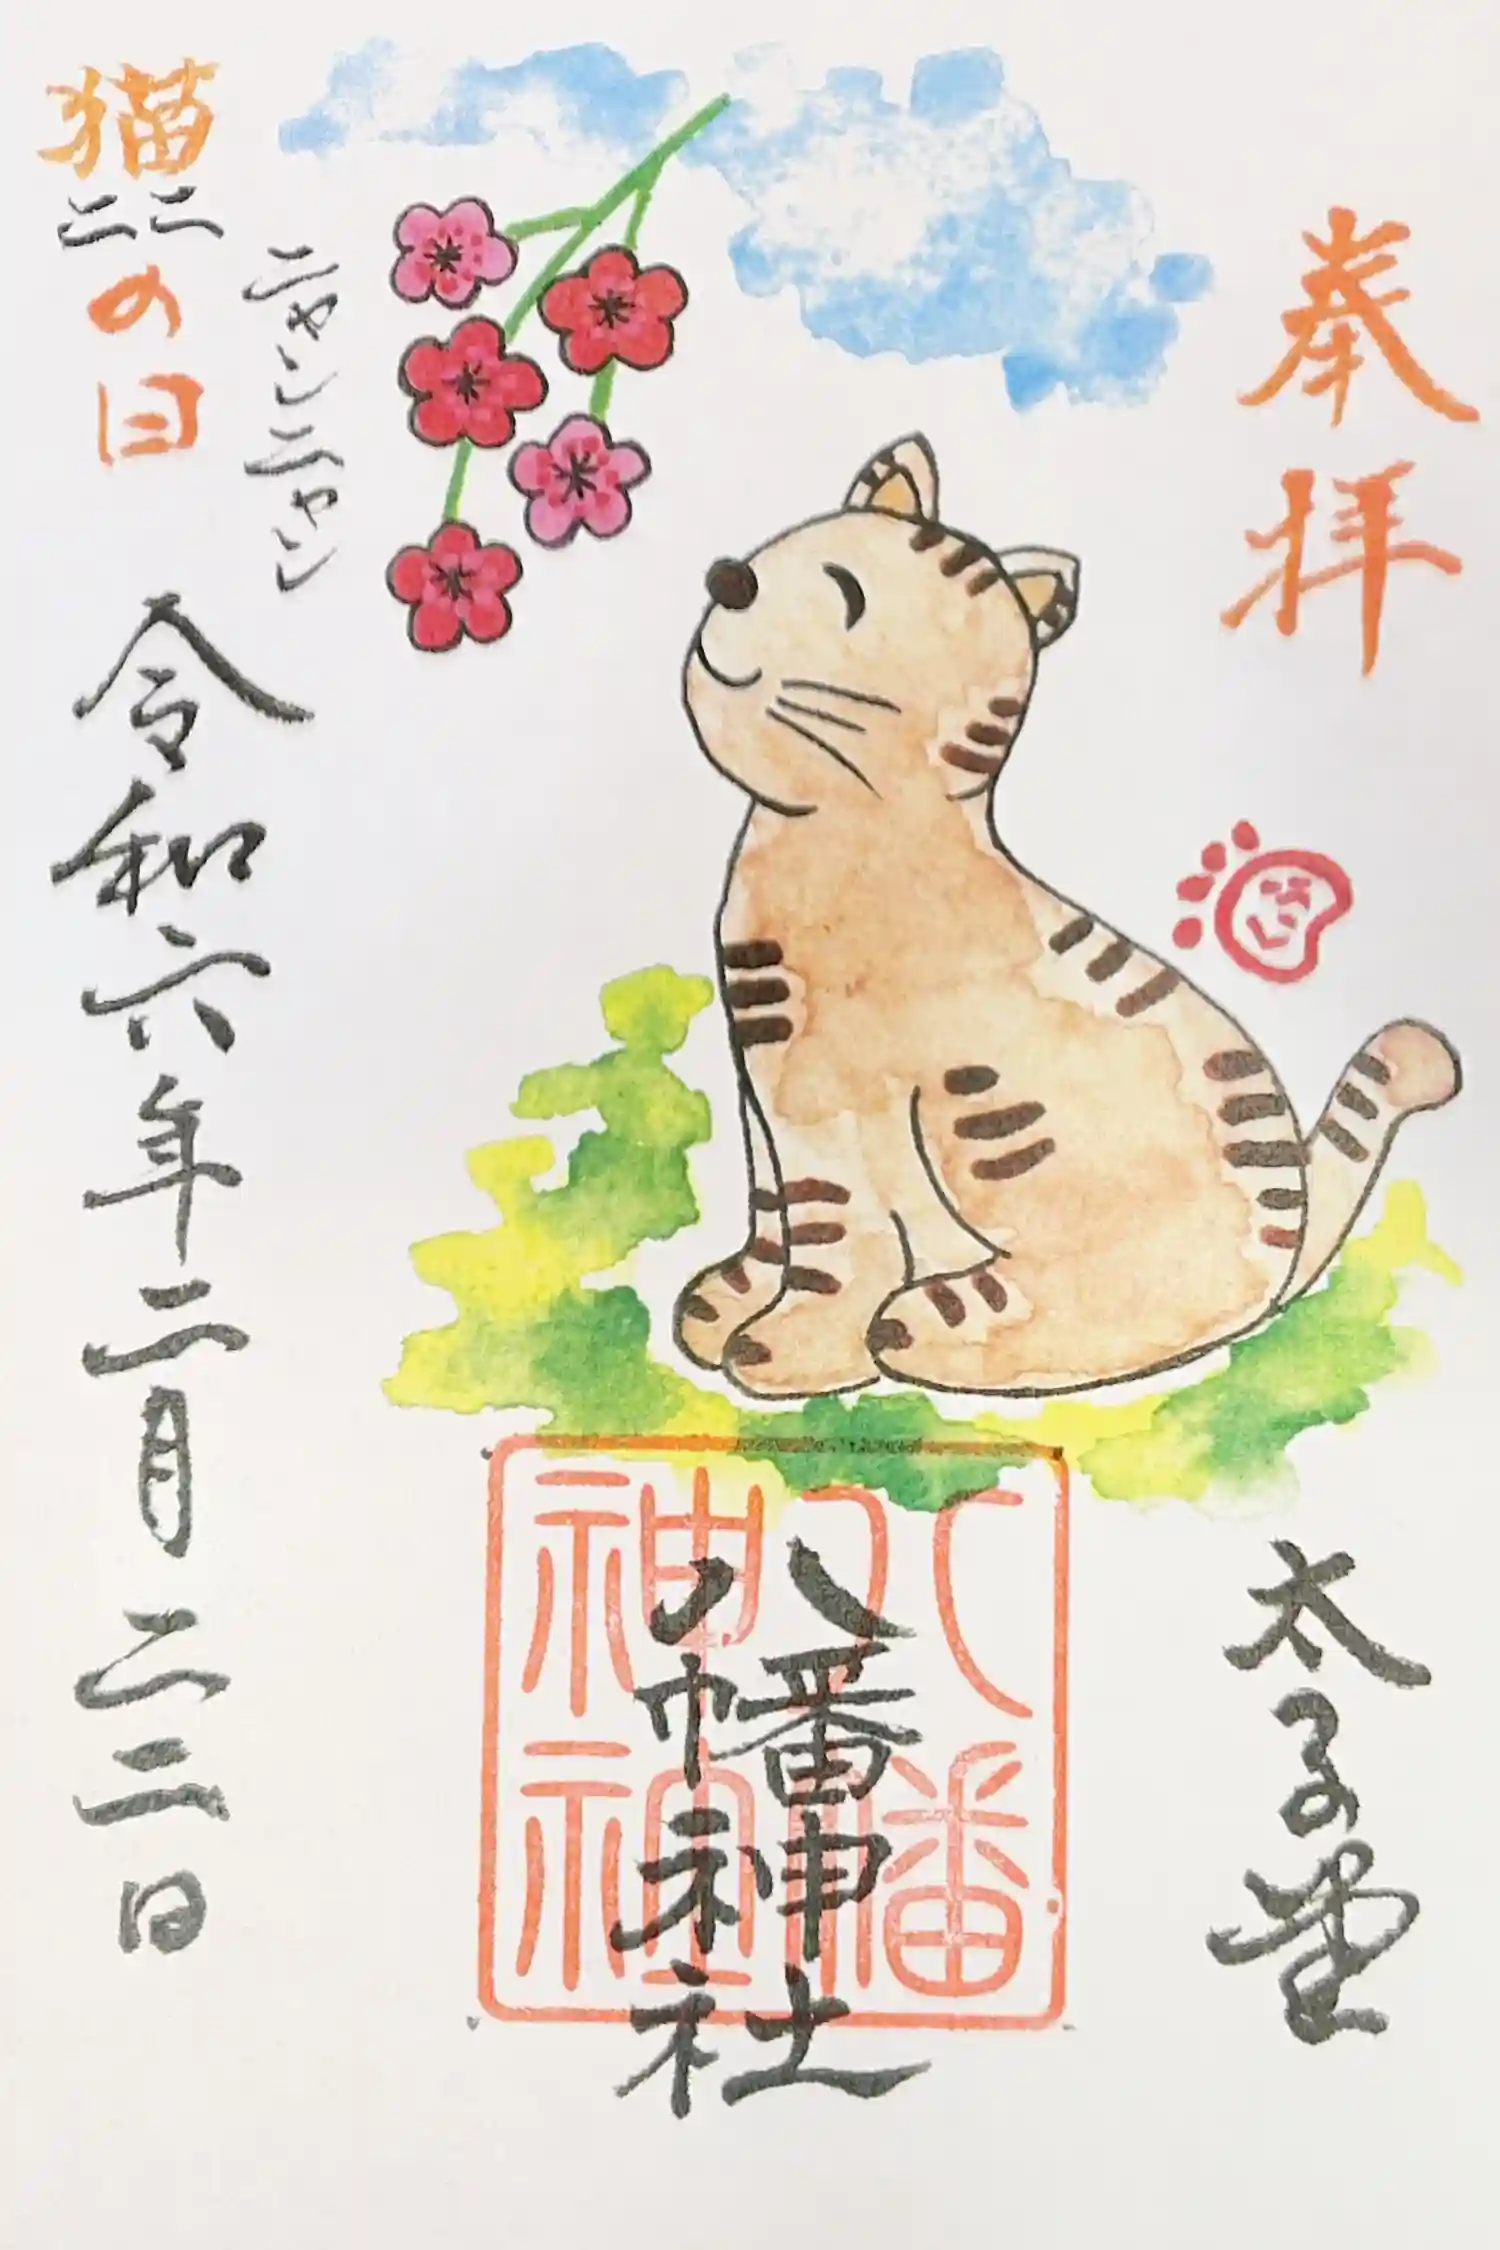 奉拝
太子堂
八幡神社
八幡
神社
ニャンニャン
猫
二二
の日
令和六年二月二二日